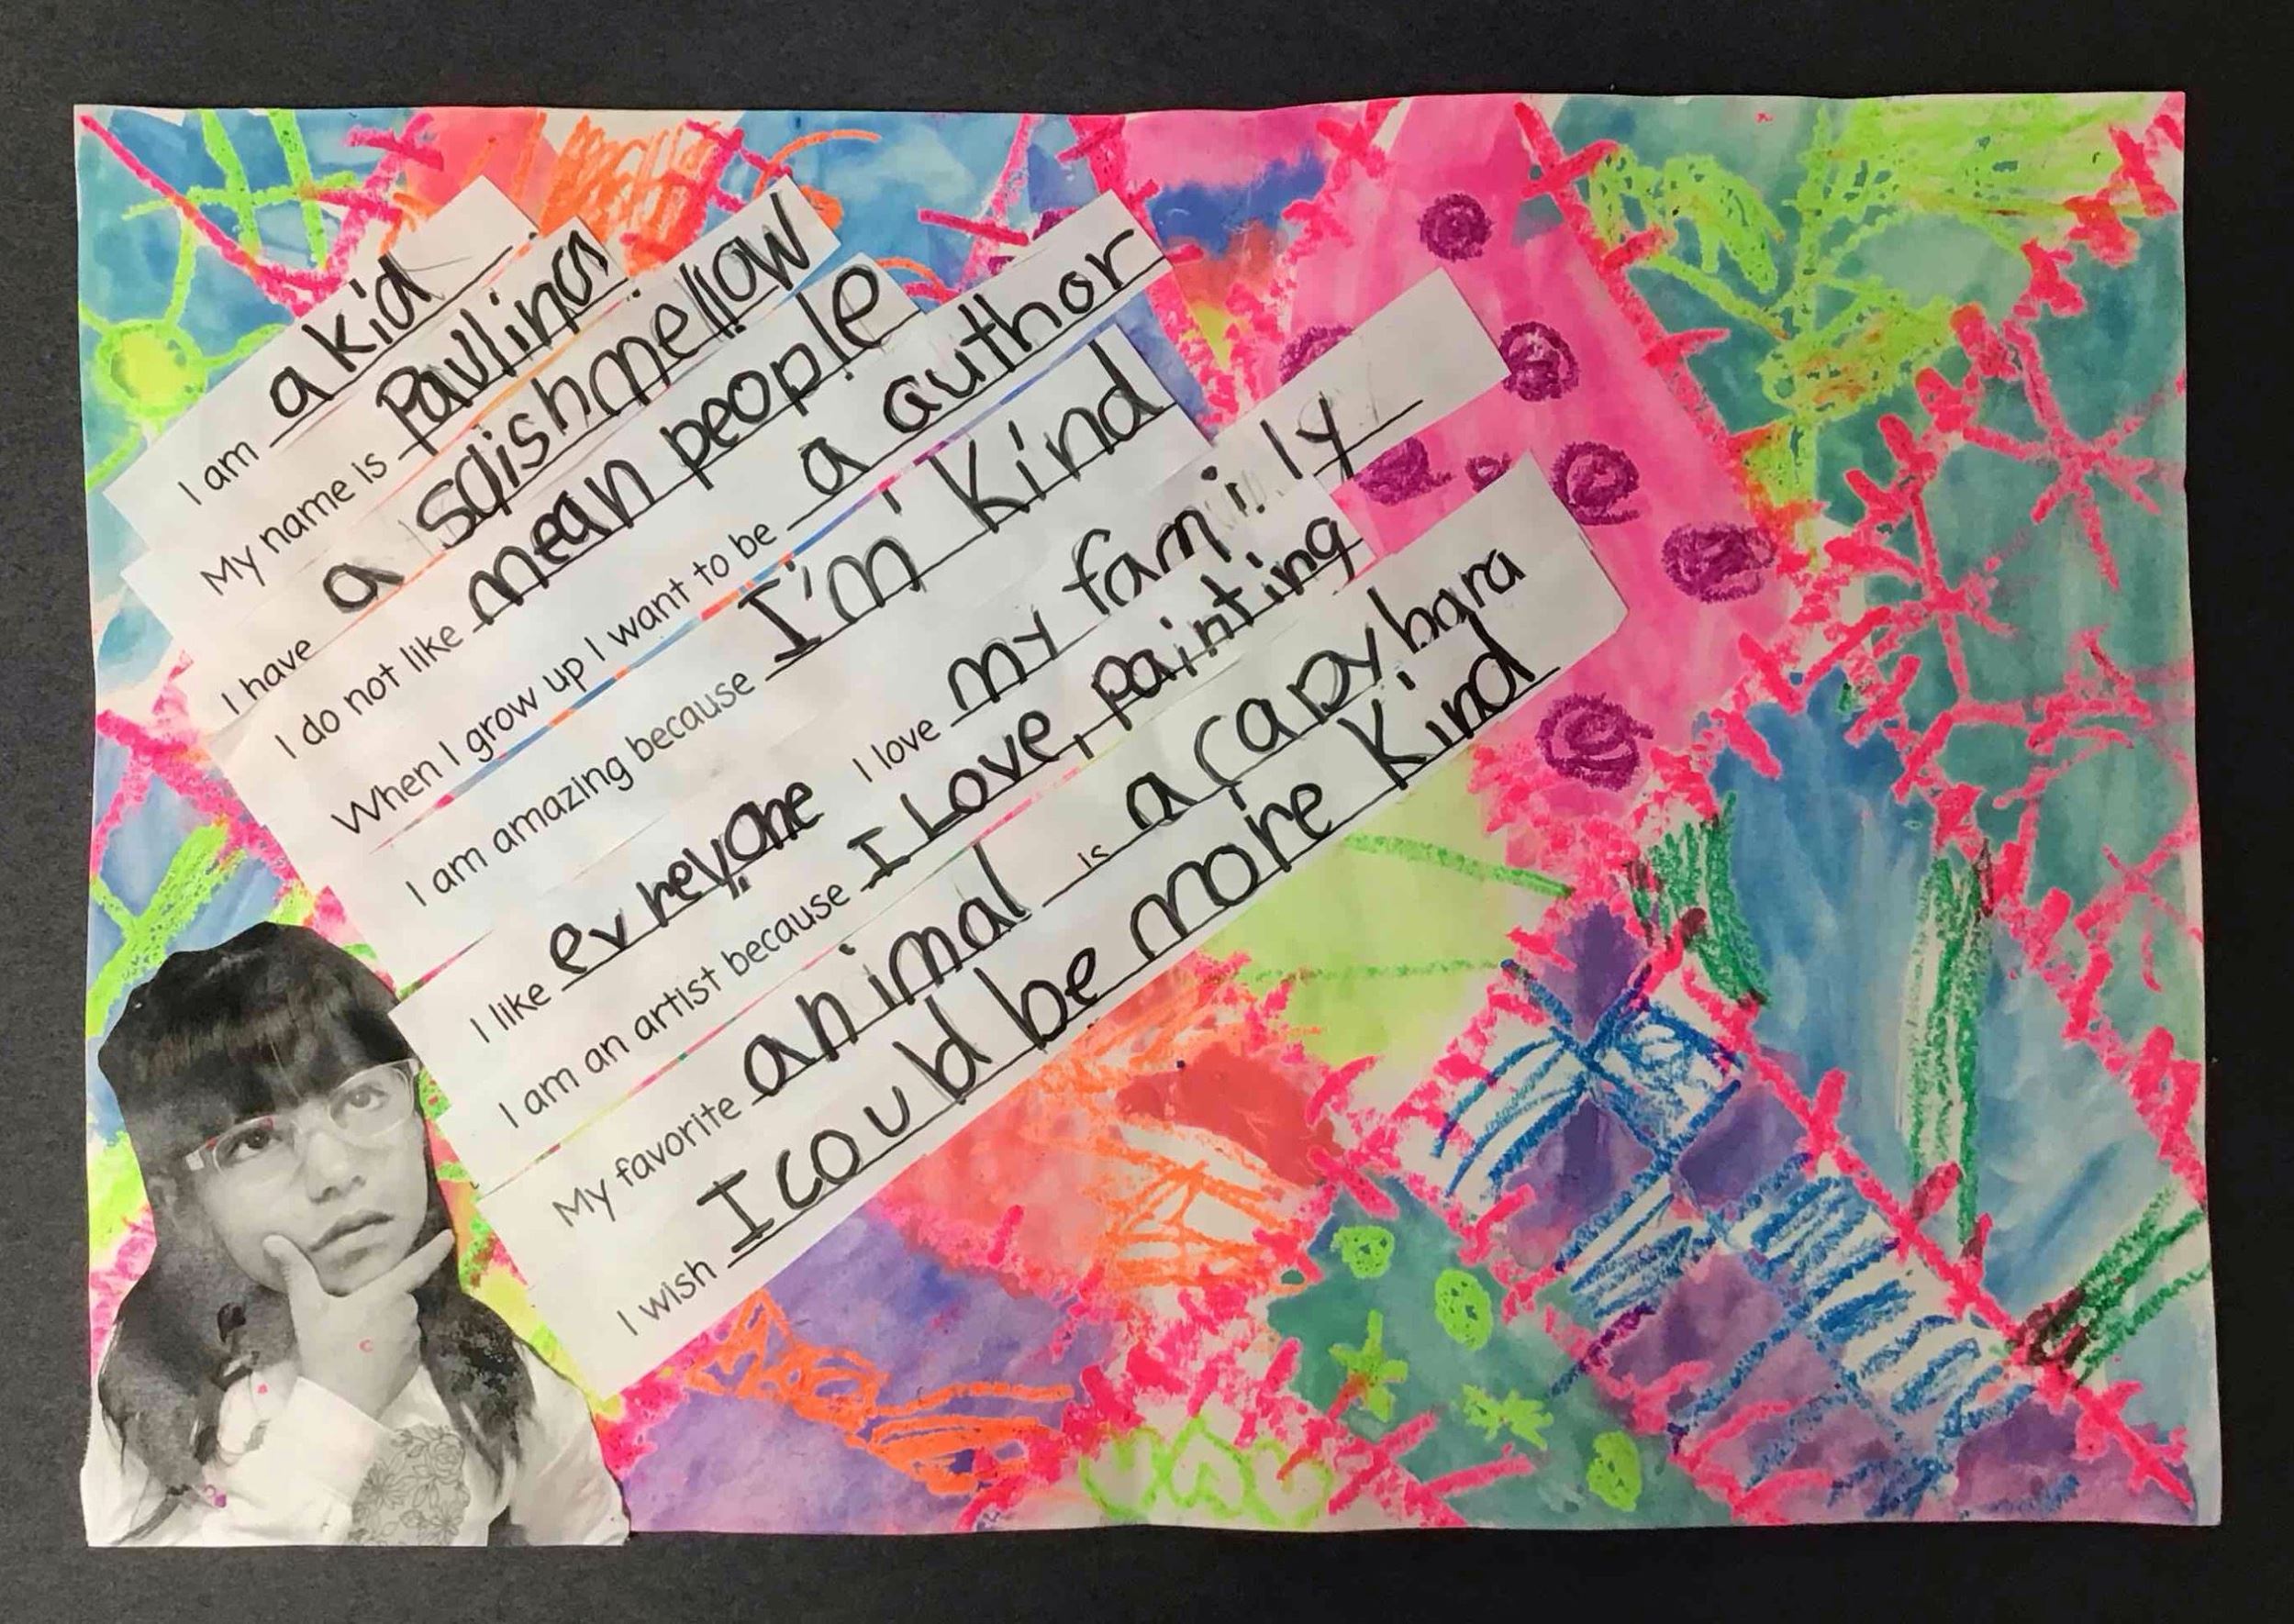 I am a kid.
My name is Pavlina.
I have a sqishmellow
I do not like mean people
When I grow up I want to be a author
I am amazing because I'm kind
I love my family
I like evreyone
I am an artist because I Love, painting
My favorite animal is a capybara
I wish I could be more kind